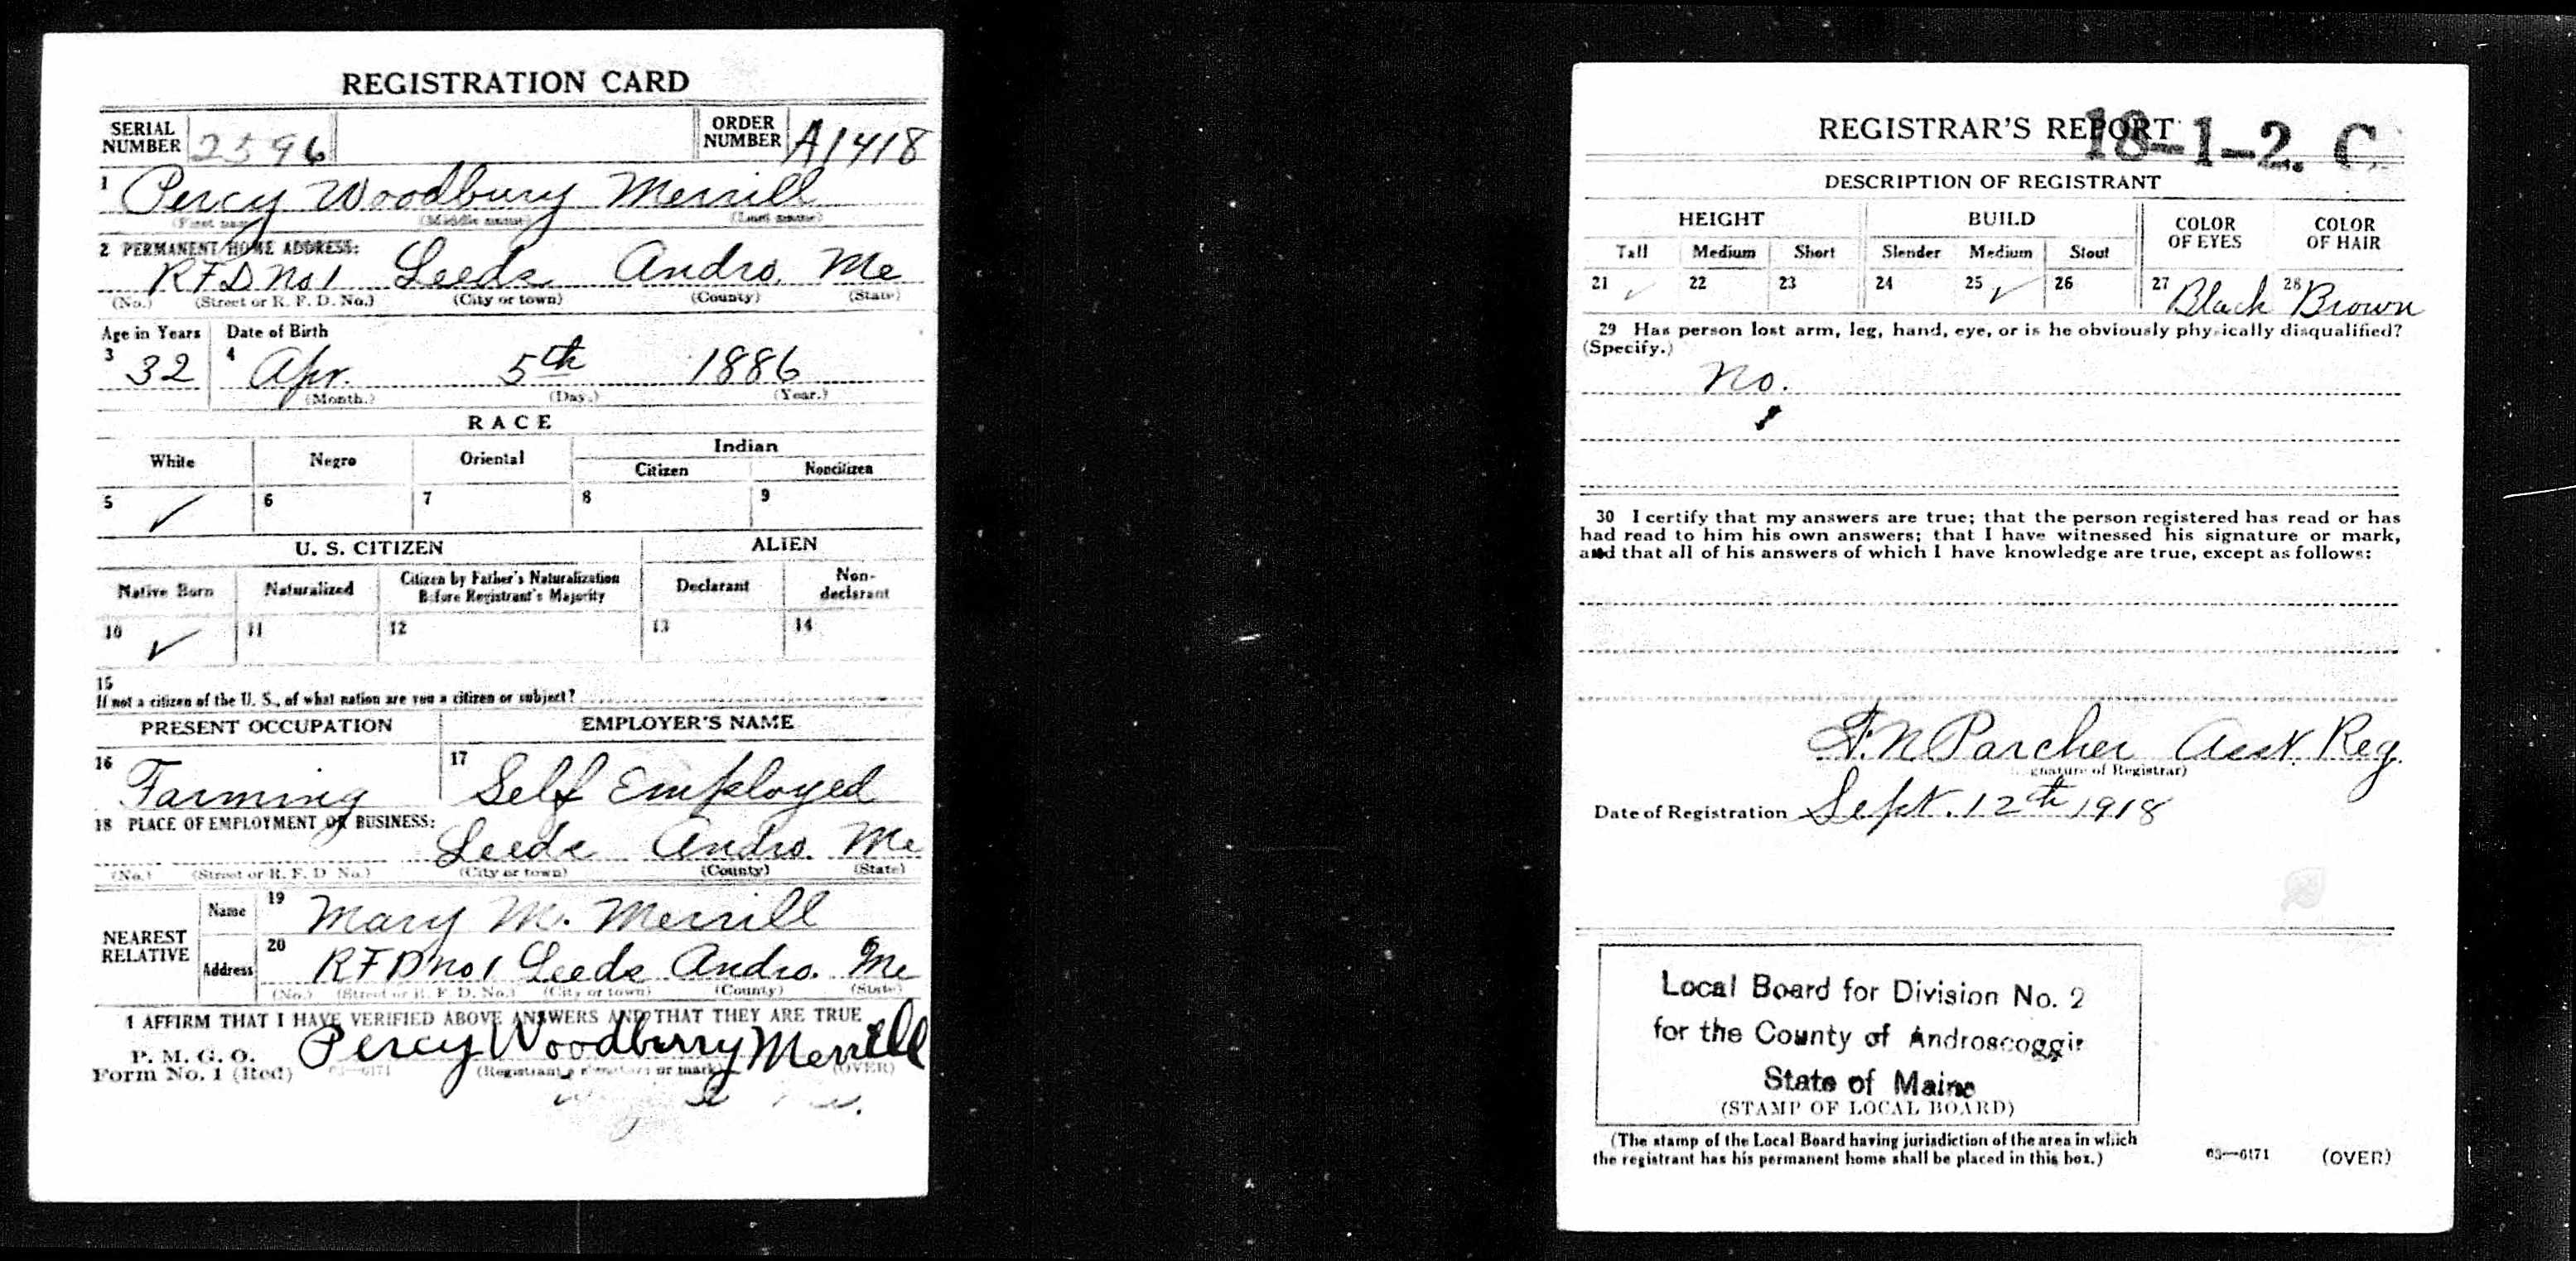 REGISTRATION CARD
SERIAL NUMBER 2596 ORDER NUMBER A1418
1 Percy Woodbury Merrill
(First name) (Middle name) (Last name)
2 PERMANENT HOME ADDRESS:
RFD No 1 Leeds Andro. Me
(No.) (Street or R. F. D. No.) (City or town) (County) (State)
Age in Years Date of Birth
3 32 4 Apr. 5th 1886
(Month.) (Day.) (Year.)
RACE
White Negro Oriental Indian
Citizen Noncitizen
5 ✓ 6 7 8 9
U. S. CITIZEN ALIEN
Native Born Naturalized Citizen by Father's Naturalization Before Registrant's Majority Declarant Non-declarant
10 ✓ 11 12 13 14
15
If not a citizen of the U. S., of what nation are you a citizen or subject?
PRESENT OCCUPATION EMPLOYER'S NAME
16 Farming 17 Self Employed
18 PLACE OF EMPLOYMENT OR BUSINESS:
Leeds Andro. Me
(No.) (Street or R. F. D. No.) (City or town) (County) (State)
NEAREST RELATIVE
Name 19 Mary M. Merrill
Address 20 RFD No 1 Leeds Andro. Me
(No.) (Street or R. F. D. No.) (City or town) (County) (State)
I AFFIRM THAT I HAVE VERIFIED ABOVE ANSWERS AND THAT THEY ARE TRUE
P. M. G. O.
Form No. 1 (Red) 03—6171 Percy Woodberry Merrill
(Registrant's signature or mark) (OVER)
REGISTRAR'S REPORT
18-1-2. C
DESCRIPTION OF REGISTRANT
HEIGHT BUILD COLOR OF EYES COLOR OF HAIR
Tall Medium Short Slender Medium Stout
21 ✓ 22 23 24 25 ✓ 26 27 Black 28 Brown
29 Has person lost arm, leg, hand, eye, or is he obviously physically disqualified?
(Specify.)
No.
30 I certify that my answers are true; that the person registered has read or has
had read to him his own answers; that I have witnessed his signature or mark,
and that all of his answers of which I have knowledge are true, except as follows:
F. N Parcher Asst. Reg.
(Signature of Registrar)
Date of Registration Sept. 12th 1918
Local Board for Division No. 2
for the County of Androscoggin
State of Maine
(STAMP OF LOCAL BOARD)
(The stamp of the Local Board having jurisdiction of the area in which
the registrant has his permanent home shall be placed in this box.)
03—6171 (OVER)